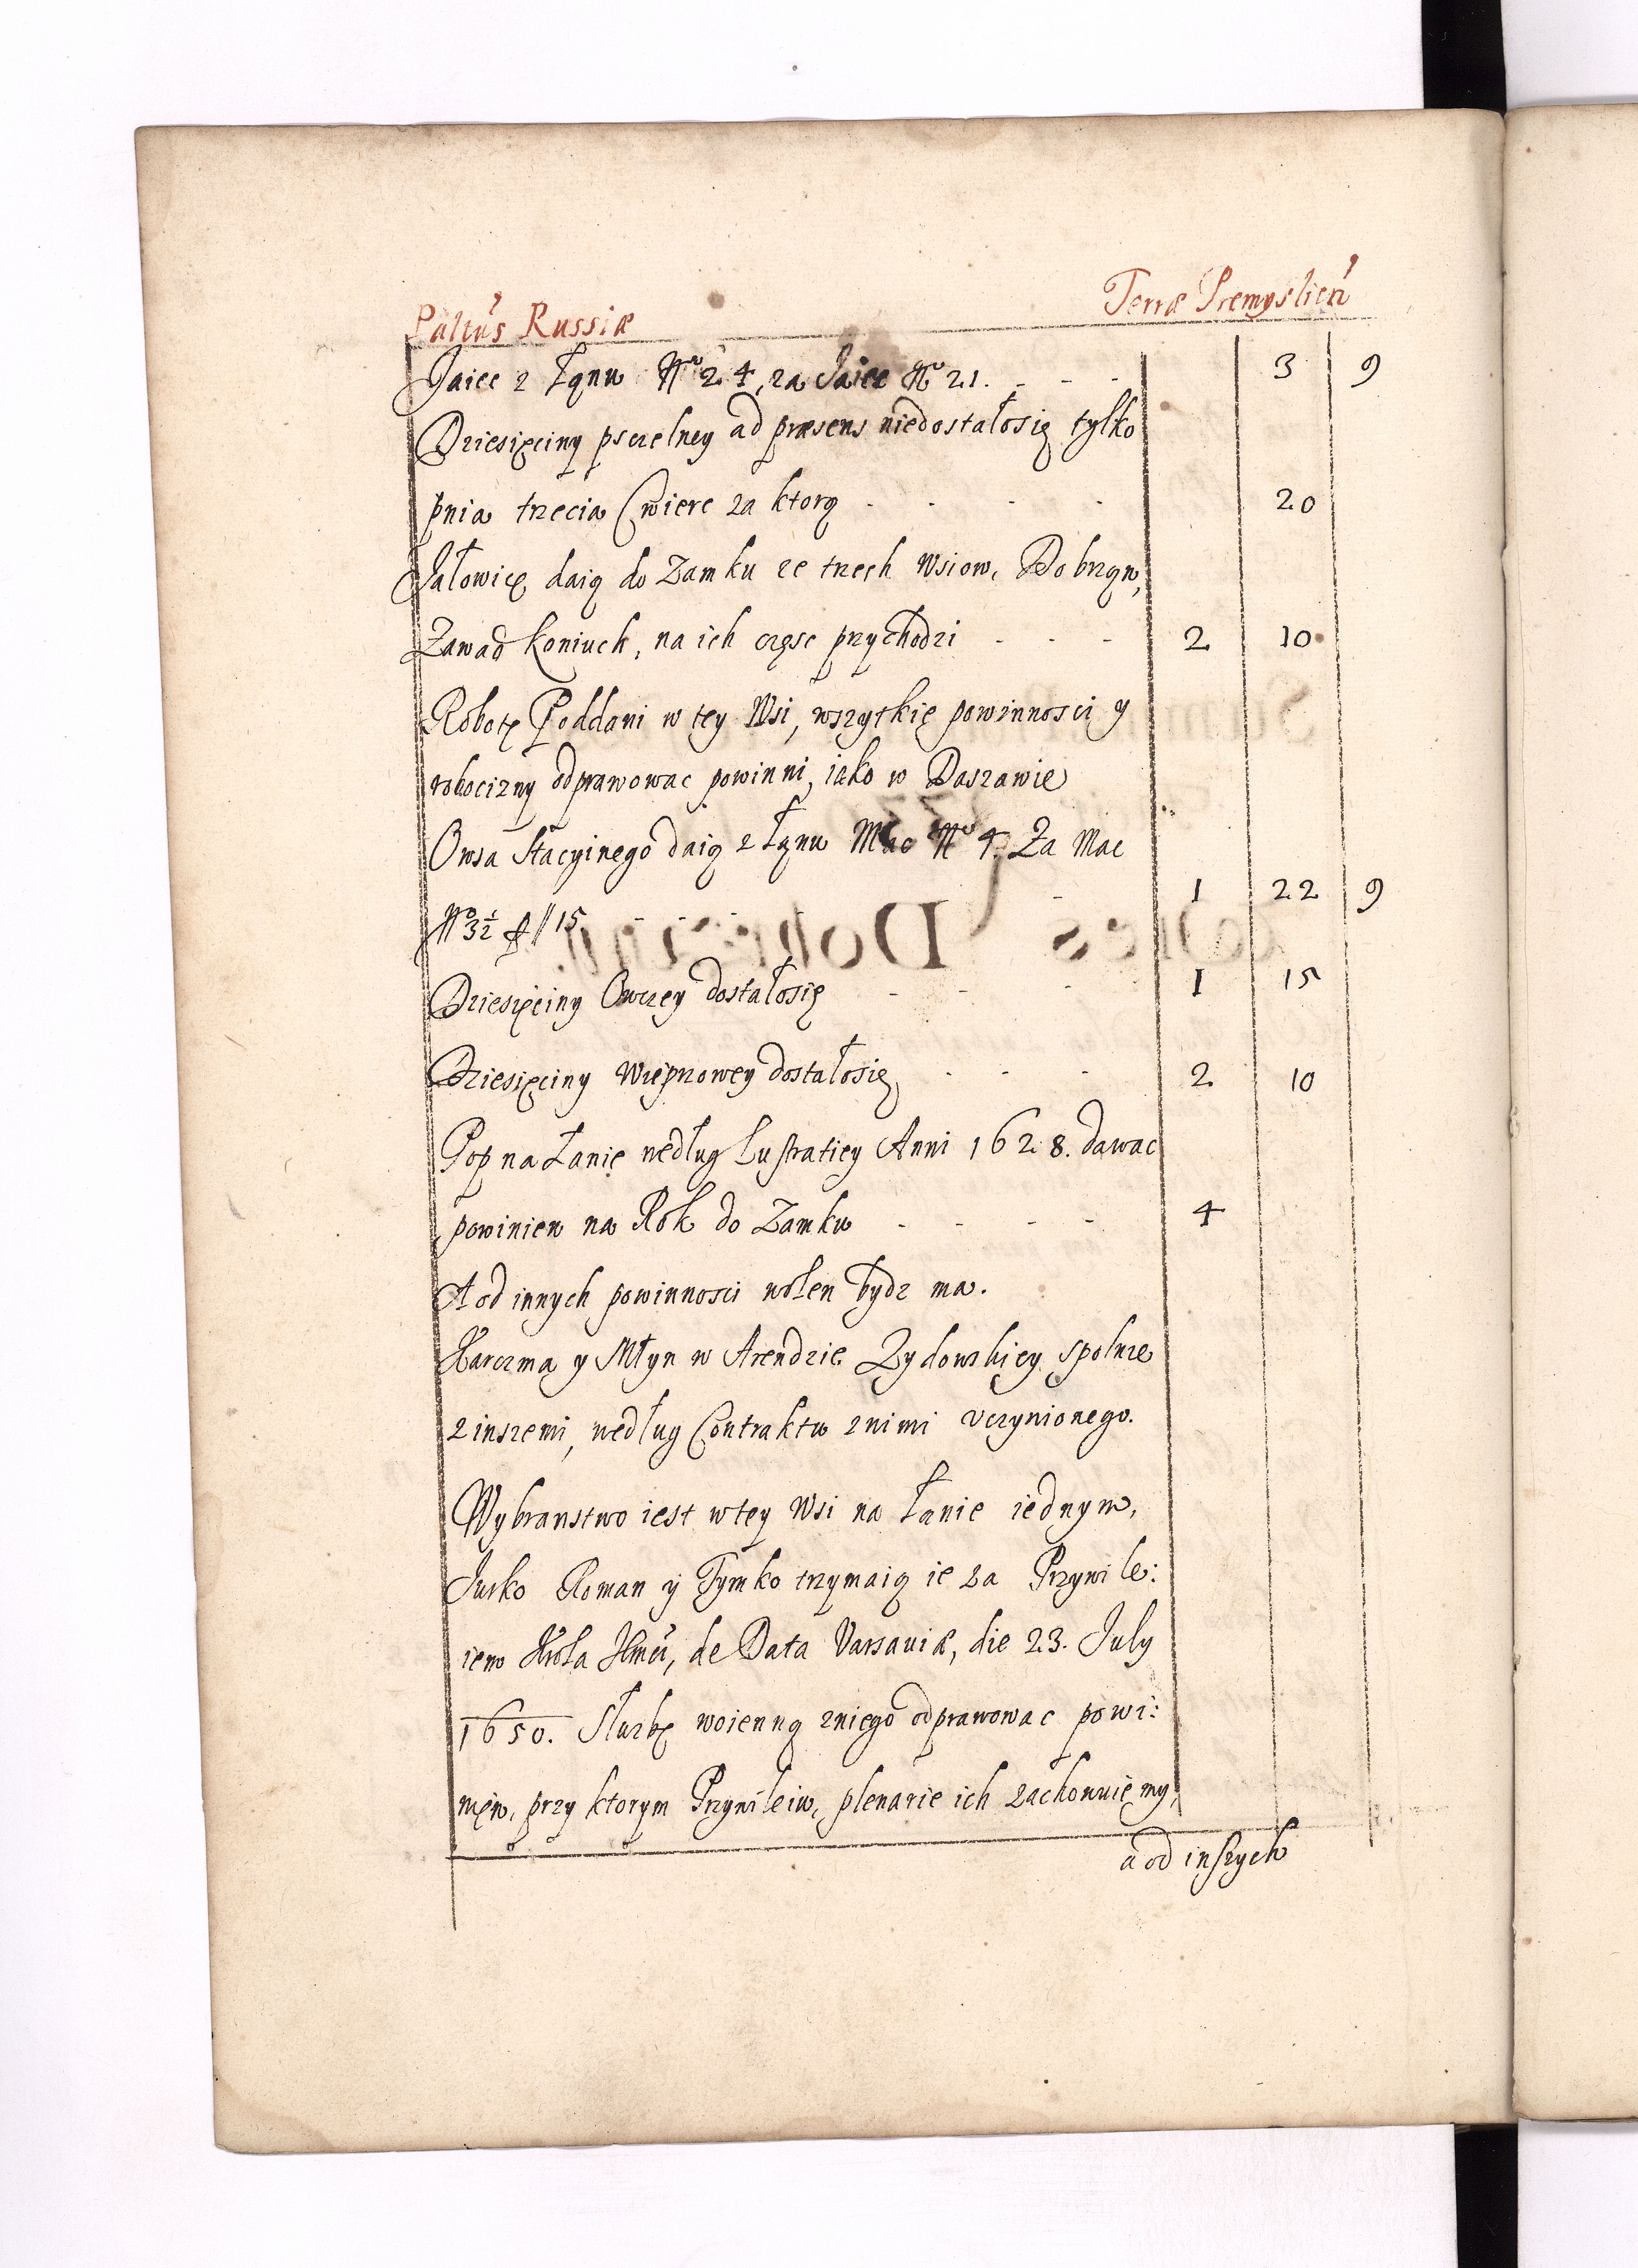 Palt'us Russiæ Terræ Premyslien'
Jaiec z Łanu No 24, za Jaiec No 21. - - - 3 9
Dziesięciny pszczelney ad præsens niedostałosię tylko
pnia trzecia Cwierc za ktorą - - - - 20
Jałowicę daią do Zamku ze trzech Wsiow, Dobrzan,
Zawad Koniuch, na ich częsc przychodzi - - - 2 10
Robotę Poddani w tey Wsi, wszytkię powinnosci y
robocizny odprawowac powinni, iako w Daszawie
Owsa Stacyinego daią z Łanu Mac No 4. Za Mac
No 3½ f// 15 - - - - 1 22 9
Dziesięciny Owczey dostałosię - - - - 1 15
Dziesięciny Wieprzowey dostałosię - - - 2 10
Pop na Łanie według Lustratiey Anni 1628. dawac
powinien na Rok do Zamku - - - - 4
A od innych powinnosci wolen bydz ma.
Karczma y Młyn w Arendzie Zydowskiey spolnie
z inszemi, według Contraktu z nimi vczynionego.
Wybranstwo iest w tey Wsi na Łanie iednym,
Jurko Roman y Tymko trzymaią ie za Przywile:
iem Krola Jmci, de Data Varsaviæ, die 23. July
1650. Służbę woienną z niego odprawowac powi:
nien, przy ktorym Przywileiu, plenarie ich zachowuiemy,
a od inszych